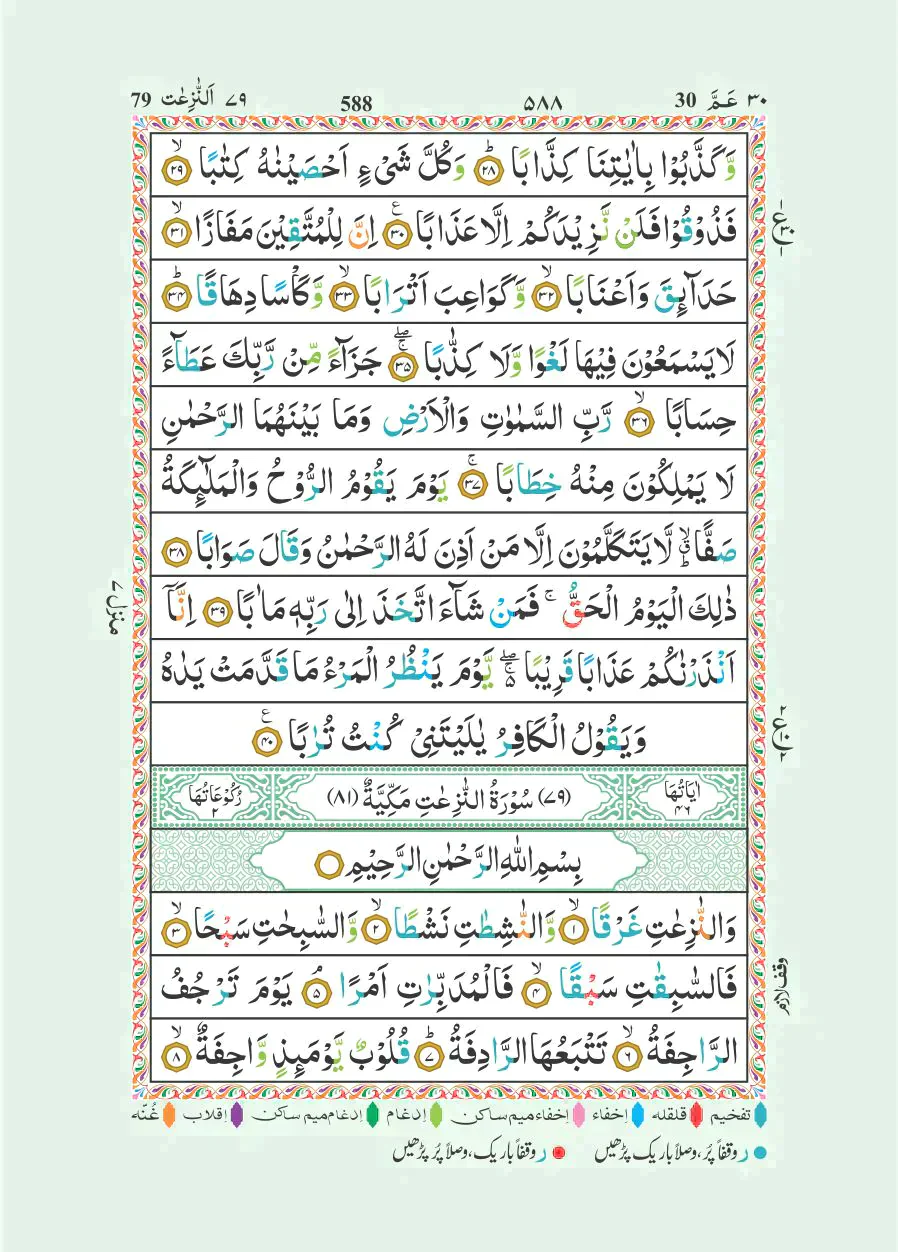 ٣٠ عَمَّ 30 ٥٨٨ 588 ٧٩ اَلنّٰزِعٰت 79
وَّكَذَّبُوْا بِاٰيٰتِنَا كِذَّابًا ؕ‏ ﴿۲۸﴾ وَكُلَّ شَىْءٍ اَحْصَيْنٰهُ كِتٰبًا ۙ‏ ﴿۲۹﴾
فَذُوْقُوْا فَلَنْ نَّزِيْدَكُمْ اِلَّا عَذَابًا ‏ ﴿۳۰﴾ ع اِنَّ لِلْمُتَّقِيْنَ مَفَازًا ۙ‏ ﴿۳۱﴾
حَدَآئِقَ وَاَعْنَابًا ۙ‏ ﴿۳۲﴾ وَّكَوَاعِبَ اَتْرَابًا ۙ‏ ﴿۳۳﴾ وَّكَاْسًا دِهَاقًا ؕ‏ ﴿۳۴﴾
لَا يَسْمَعُوْنَ فِيْهَا لَغْوًا وَّلَا كِذّٰبًا ۚ‏ ﴿۳۵﴾ جَزَآءً مِّنْ رَّبِّكَ عَطَآءً
حِسَابًا ۙ‏ ﴿۳۶﴾ رَّبِّ السَّمٰوٰتِ وَالْاَرْضِ وَمَا بَيْنَهُمَا الرَّحْمٰنِ
لَا يَمْلِكُوْنَ مِنْهُ خِطَابًا ۚ‏ ﴿۳۷﴾ يَوْمَ يَقُوْمُ الرُّوْحُ وَالْمَلٰٓئِكَةُ
صَفًّا ۙۗ لَّا يَتَكَلَّمُوْنَ اِلَّا مَنْ اَذِنَ لَهُ الرَّحْمٰنُ وَقَالَ صَوَابًا ﴿۳۸﴾
ذٰلِكَ الْيَوْمُ الْحَقُّ ۚ فَمَنْ شَآءَ اتَّخَذَ اِلٰى رَبِّهٖ مَاٰبًا ﴿۳۹﴾ اِنَّاۤ
اَنْذَرْنٰكُمْ عَذَابًا قَرِيْبًا ۖۚ ۵ يَّوْمَ يَنْظُرُ الْمَرْءُ مَا قَدَّمَتْ يَدٰهُ
وَيَقُوْلُ الْكَافِرُ يٰلَيْتَنِىْ كُنْتُ تُرٰبًا ﴿۴۰﴾ ع
اٰيَاتُهَا ٤٦ (٧٩) سُوْرَةُ النّٰزِعٰتِ مَكِّيَّةٌ (٨١) رُكُوْعَاتُهَا ٢
بِسْمِ اللّٰهِ الرَّحْمٰنِ الرَّحِيْمِ
وَالنّٰزِعٰتِ غَرْقًا ۙ‏ ﴿۱﴾ وَّالنّٰشِطٰتِ نَشْطًا ۙ‏ ﴿۲﴾ وَّالسّٰبِحٰتِ سَبْحًا ۙ‏ ﴿۳﴾
فَالسّٰبِقٰتِ سَبْقًا ۙ‏ ﴿۴﴾ فَالْمُدَبِّرٰتِ اَمْرًا ۘ‏ ﴿۵﴾ يَوْمَ تَرْجُفُ
الرَّاجِفَةُ ۙ‏ ﴿۶﴾ تَتْبَعُهَا الرَّادِفَةُ ؕ‏ ﴿۷﴾ قُلُوْبٌ يَّوْمَئِذٍ وَّاجِفَةٌ ۙ‏ ﴿۸﴾
منزل ٧
وقف لازم
تفخیم قلقله اِخفاء اِخفاء میم ساکن اِدغام اِدغام میم ساکن اِقلاب غُنّه
ر وقفاً پُر، وصلاً باریک پڑھیں ر وقفاً باریک، وصلاً پُر پڑھیں